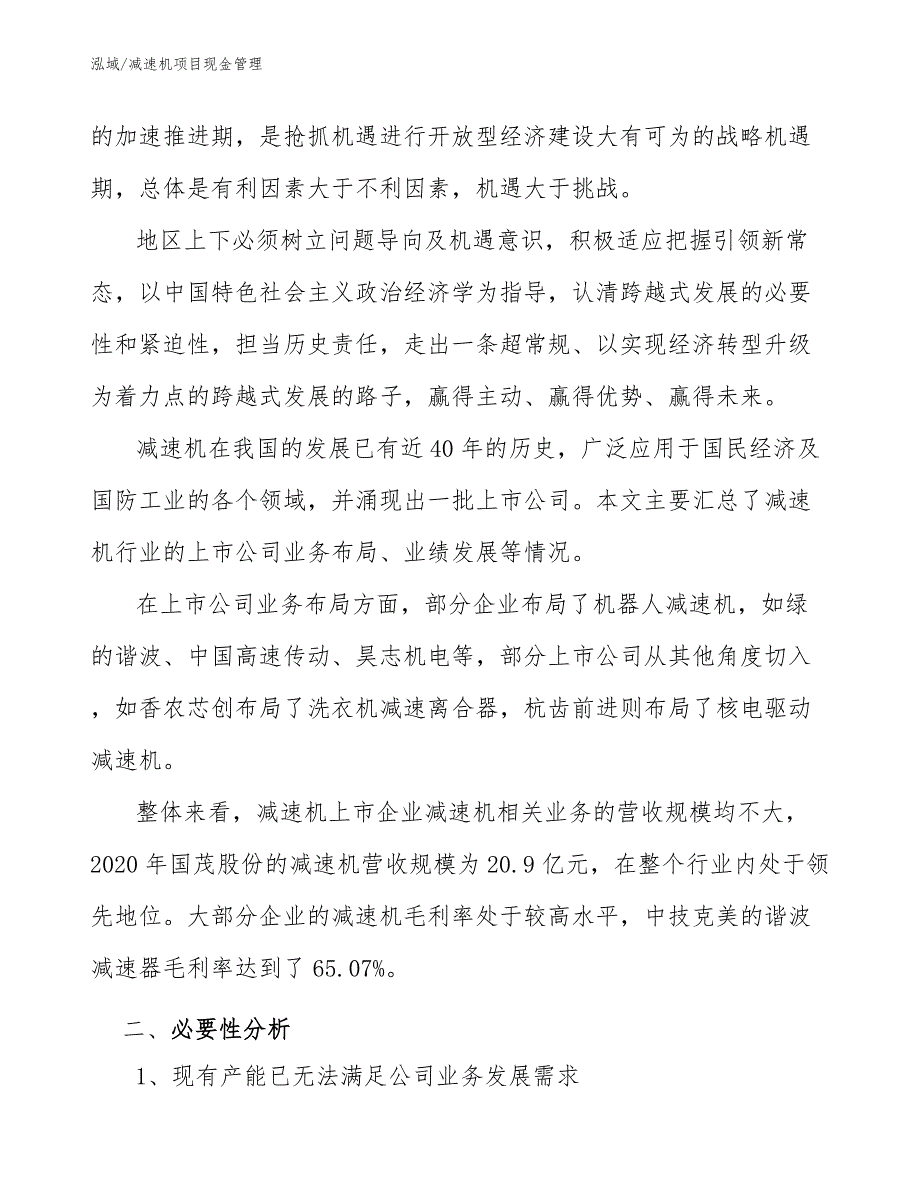 泓域/减速机项目现金管理
的加速推进期，是抢抓机遇进行开放型经济建设大有可为的战略机遇
期，总体是有利因素大于不利因素，机遇大于挑战。
地区上下必须树立问题导向及机遇意识，积极适应把握引领新常
态，以中国特色社会主义政治经济学为指导，认清跨越式发展的必要
性和紧迫性，担当历史责任，走出一条超常规、以实现经济转型升级
为着力点的跨越式发展的路子，赢得主动、赢得优势、赢得未来。
减速机在我国的发展已有近 40 年的历史，广泛应用于国民经济及
国防工业的各个领域，并涌现出一批上市公司。本文主要汇总了减速
机行业的上市公司业务布局、业绩发展等情况。
在上市公司业务布局方面，部分企业布局了机器人减速机，如绿
的谐波、中国高速传动、昊志机电等，部分上市公司从其他角度切入
，如香农芯创布局了洗衣机减速离合器，杭齿前进则布局了核电驱动
减速机。
整体来看，减速机上市企业减速机相关业务的营收规模均不大，
2020 年国茂股份的减速机营收规模为 20.9 亿元，在整个行业内处于领
先地位。大部分企业的减速机毛利率处于较高水平，中技克美的谐波
减速器毛利率达到了 65.07%。
二、必要性分析
1、现有产能已无法满足公司业务发展需求